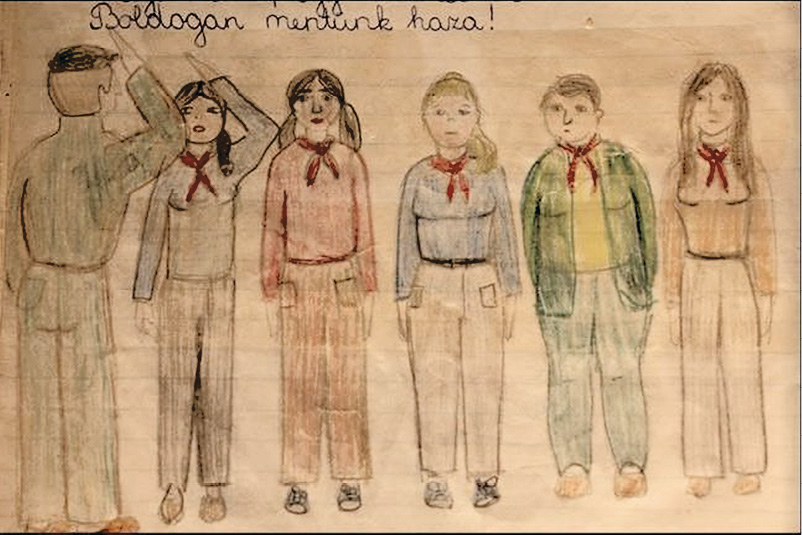 Boldogan mentünk haza!